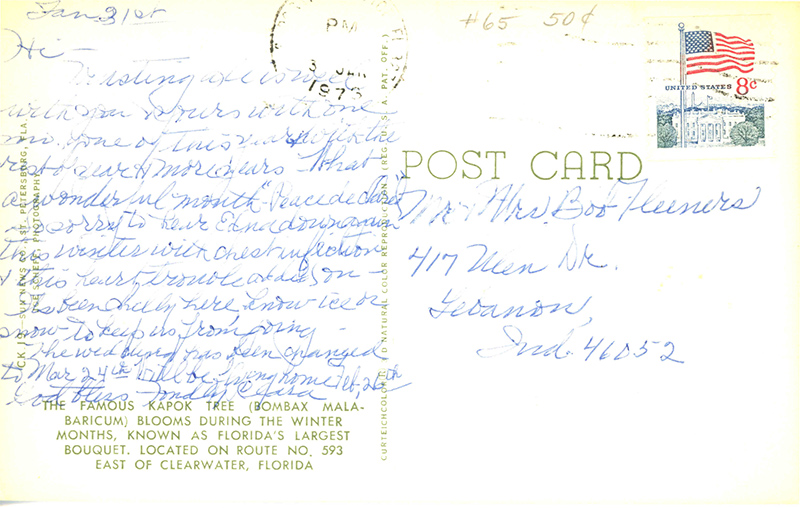 Jan 31st
#65 50¢
PM
1973
UNITED STATES 8c
Hi -
Trusting all is well
with you is ours with one
mo. gone of this year with the
rest of year & more years - What
a wonderful month "Peace declared"
so sorry to hear Edna down again
this winter with chest infection
& this heart trouble added on -
Its been chilly here, know ice or
snow to keep us from going -
The wedding has been changed
to Mar 24th Will be flying home Feb, 26th
God bless Fondly
POST CARD
Mr Mrs Bob Fleeners
417 Dr.
Lebanon,
Ind. 46052
THE FAMOUS KAPOK TREE (BOMBAX MALA-
BARICUM) BLOOMS DURING THE WINTER
MONTHS, KNOWN AS FLORIDA'S LARGEST
BOUQUET. LOCATED ON ROUTE NO. 593
EAST OF CLEARWATER, FLORIDA
SUN NEWS CO., ST. PETERSBURG, FLA.
PHOTOGRAPH
CURTEICHCOLOR NATURAL COLOR REPRODUCTION (REG. U.S.A. PAT. OFF.)